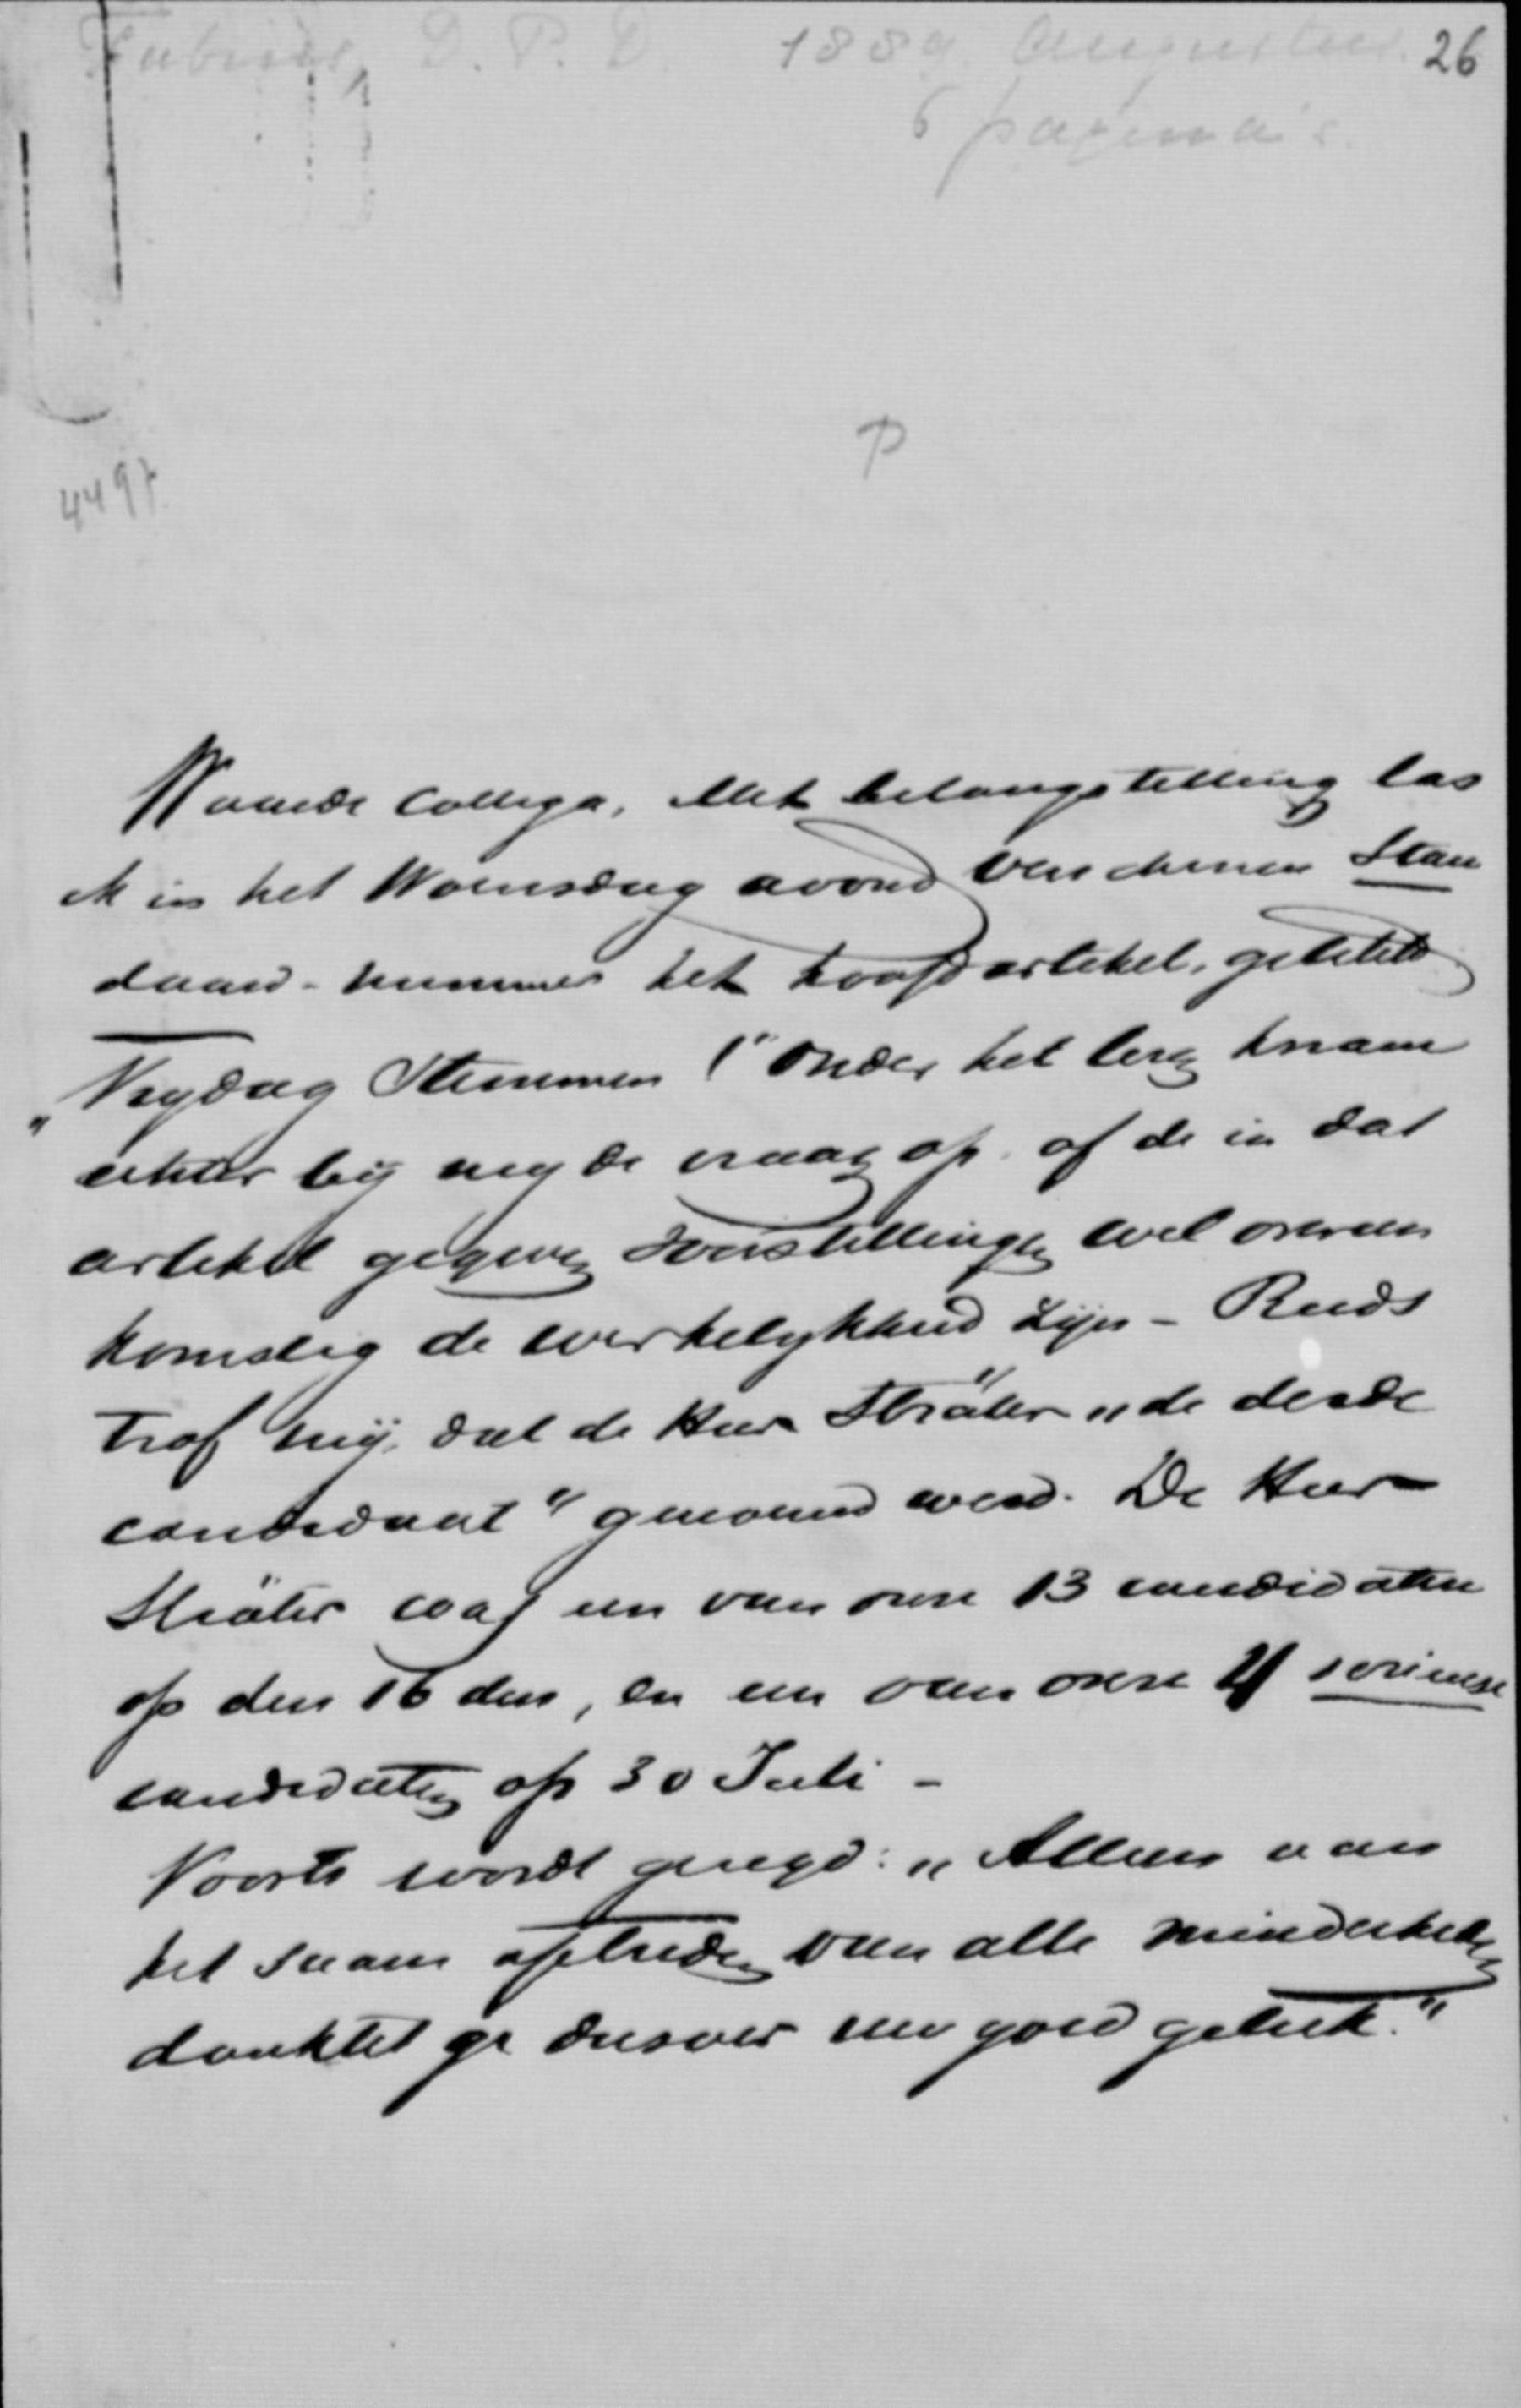 Fabius, D. P. D. 1889 Augustus. 26
6 pagina's.
P
4497
Waarde collega, Met belangstelling las
ik in het Woensdag avond verschenen Stan
daard-nummer het hoofdartikel, getiteld
„Vrydag Stemmen!" Onder het lezen kwam
echter bij mij de vraag op of de in dat
artikel gegeven voorstellingen wel overeen
komstig de werkelykheid zijn - Reeds
trof mij, dat de Heer Sträter „de derde
candidaat" genoemd werd. De Heer
Sträter was een van onze 13 candidaten
op den 16 den, en een van onze 4
candidaten op 30 Juli -
Voorts wordt gezegd: „Alleen aan
het saam optreden van alle minderheden
danktet ge dusver uw goed geluk."